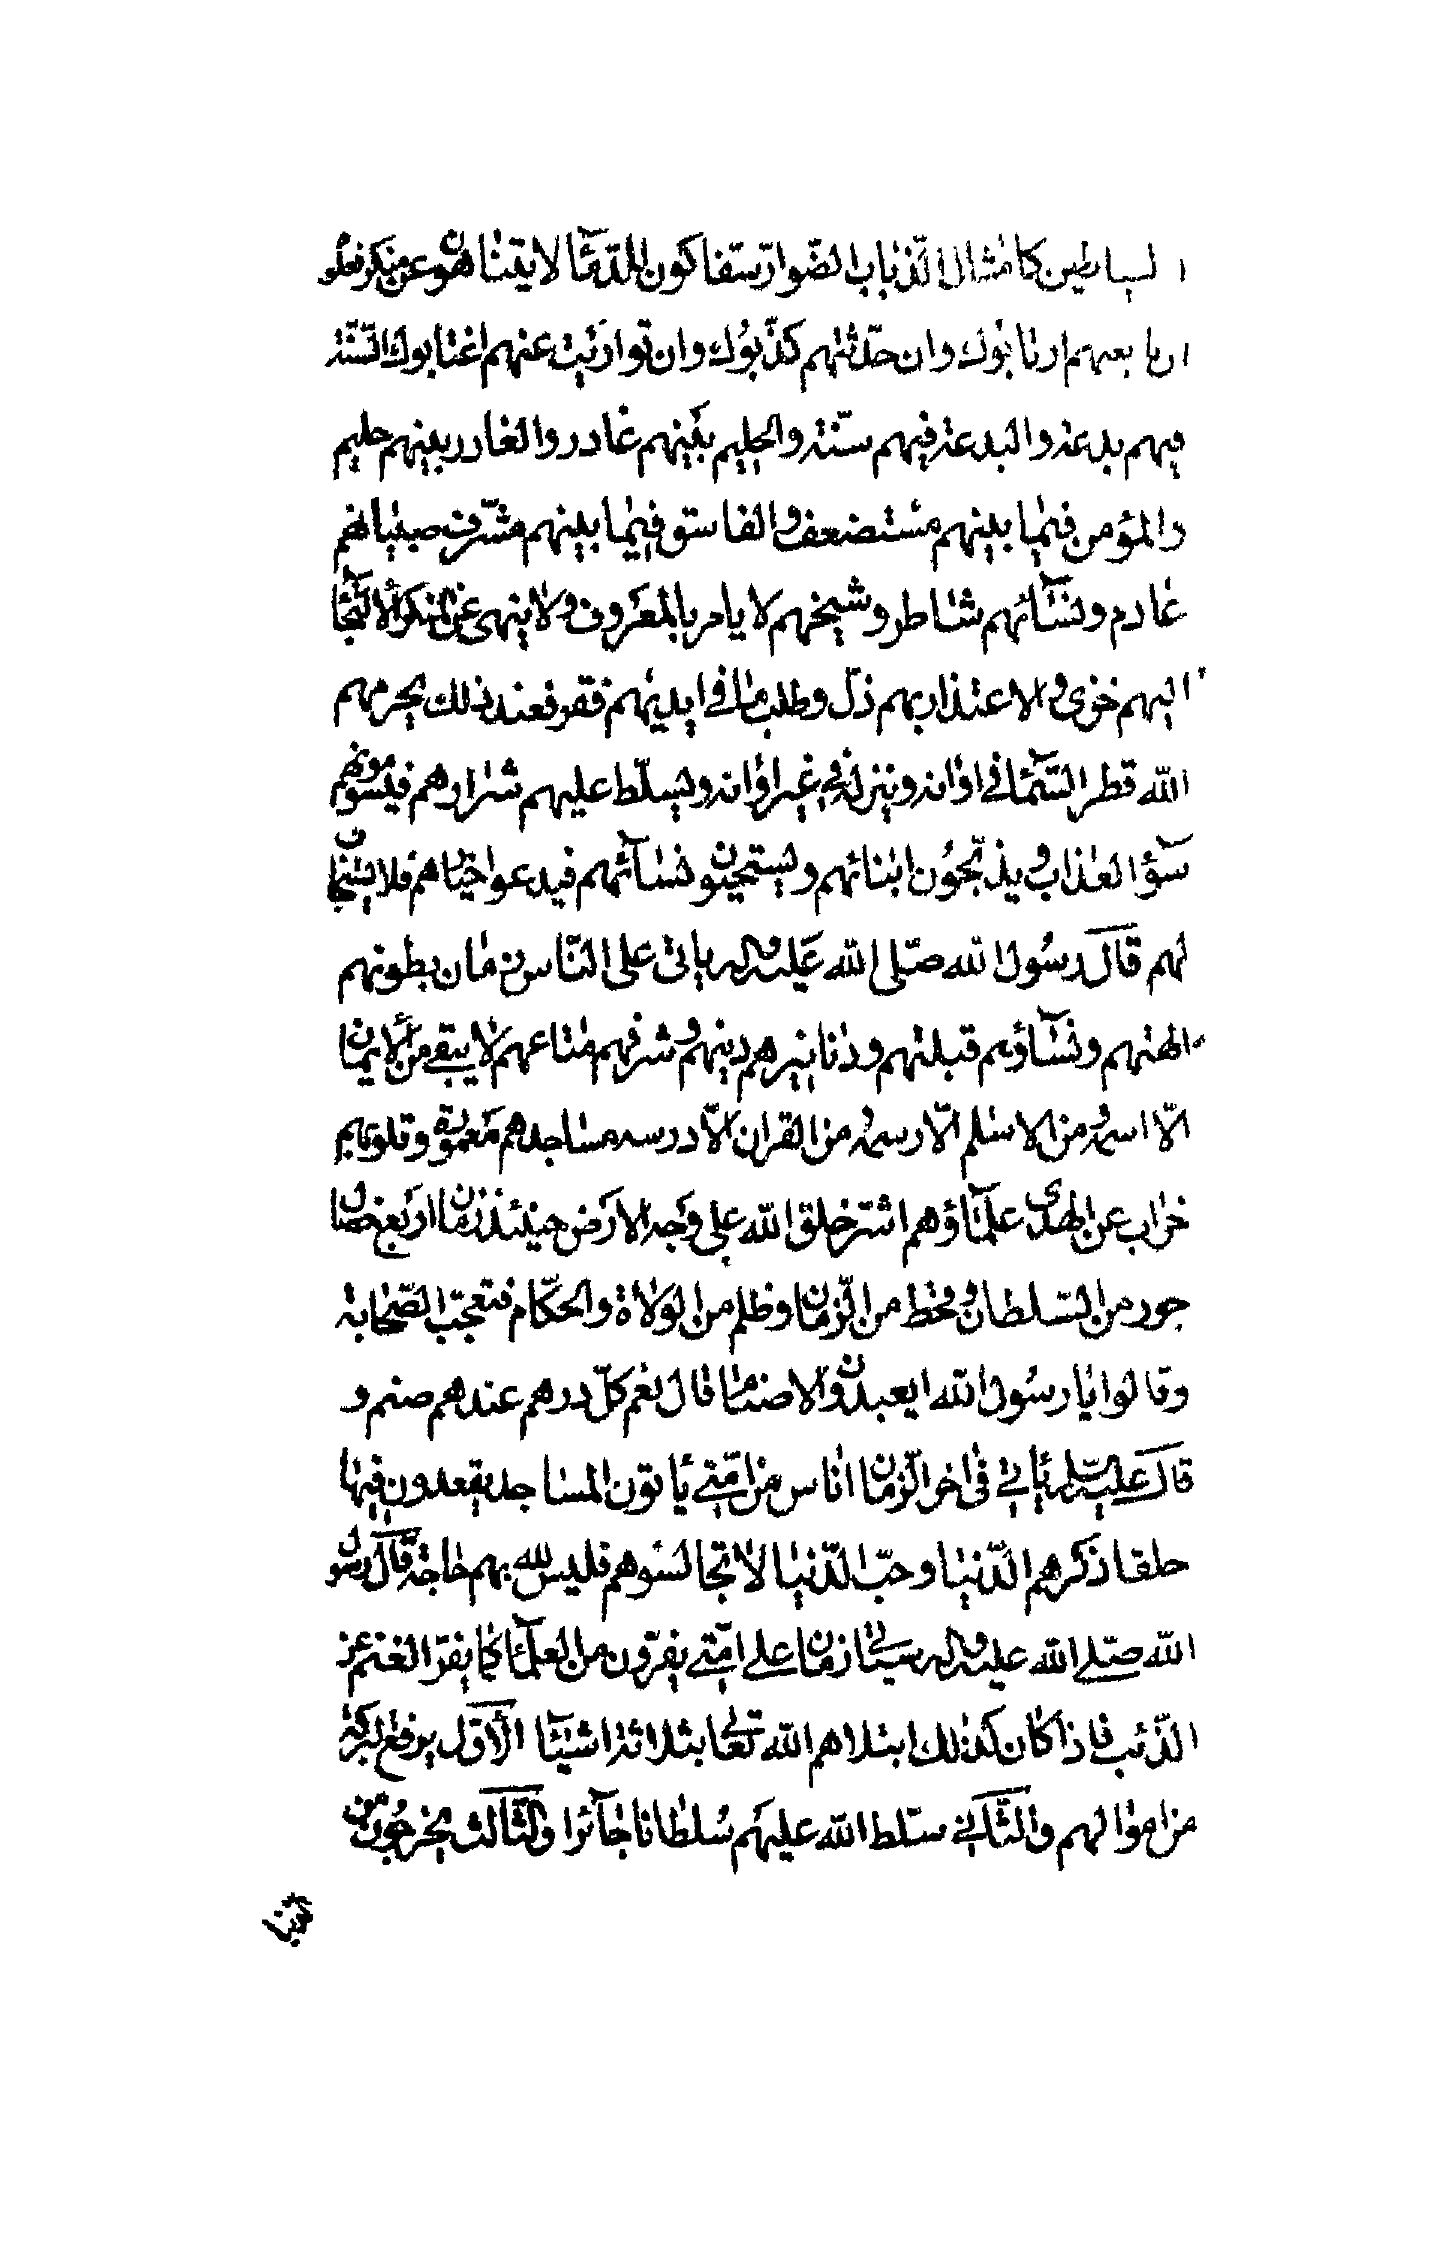 الشياطين كامثال الذئاب الضوار سفاكون للدماء لا يتناهون عن منكر فعلوه
ان تابعتهم ارتابوك وان حدثتهم كذبوك وان تواريت عنهم اغتابوك السنة
فيهم بدعة والبدعة فيهم سنة والحليم بينهم غادر والغادر بينهم حليم
والمؤمن فيما بينهم مستضعف والفاسق فيما بينهم مشرف صبيانهم
عارم ونسائهم شاطر وشيخهم لا يامر بالمعروف ولا ينهى عن المنكر الالتجاء
اليهم خزى والاعتذار بهم ذل وطلب ما في ايديهم فقر فعند ذلك يحرمهم
الله قطر السماء في اوانه وينزله في غير اوانه ويسلط عليهم شرارهم فيسومونهم
سوء العذاب ويذبحون ابنائهم ويستحيون نسائهم فيدعو اخيارهم فلا يستجاب
لهم قال رسول الله صلى الله عليه واله ياتى على الناس زمان بطونهم
الهتهم ونساؤهم قبلتهم ودنانيرهم دينهم وشرفهم متاعهم لا يبقى من الايمان
الا اسمه ومن الاسلم الا رسمه ومن القران الا درسه مساجدهم معمورة وقلوبهم
خراب عن الهدى علماؤهم اشر خلق الله على وجه الارض حينئذ زمان اربع خصال
جور من السلطان وقحط من الزمان وظلم من الولاة والحكام فتعجب الصحابة
وقالوا يا رسول الله ايعبدون الاصنام قال نعم كل درهم عندهم صنم و
قال عليه السلم ياتي في اخر الزمان اناس من امتي ياتون المساجد يقعدون فيها
حلقا ذكرهم الدنيا وحب الدنيا لا تجالسوهم فليس لله بهم حاجة وقال رسول
الله صلى الله عليه واله سياتي زمان على امتي يفرون من العلماء كما يفر الغنم عن
الذئب فاذا كان كذلك ابتلاهم الله تعالى بثلاثة اشياء الاول يرفع البركة
من اموالهم والثاني سلط الله عليهم سلطانا جائرا والثالث يخرجون من